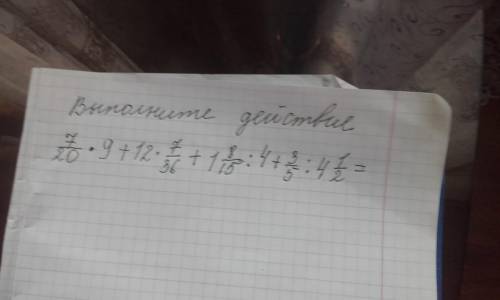 Выполните действие
7/20 · 9 + 12 · 7/36 + 1 8/15 : 4 + 3/5 : 4 1/2 =